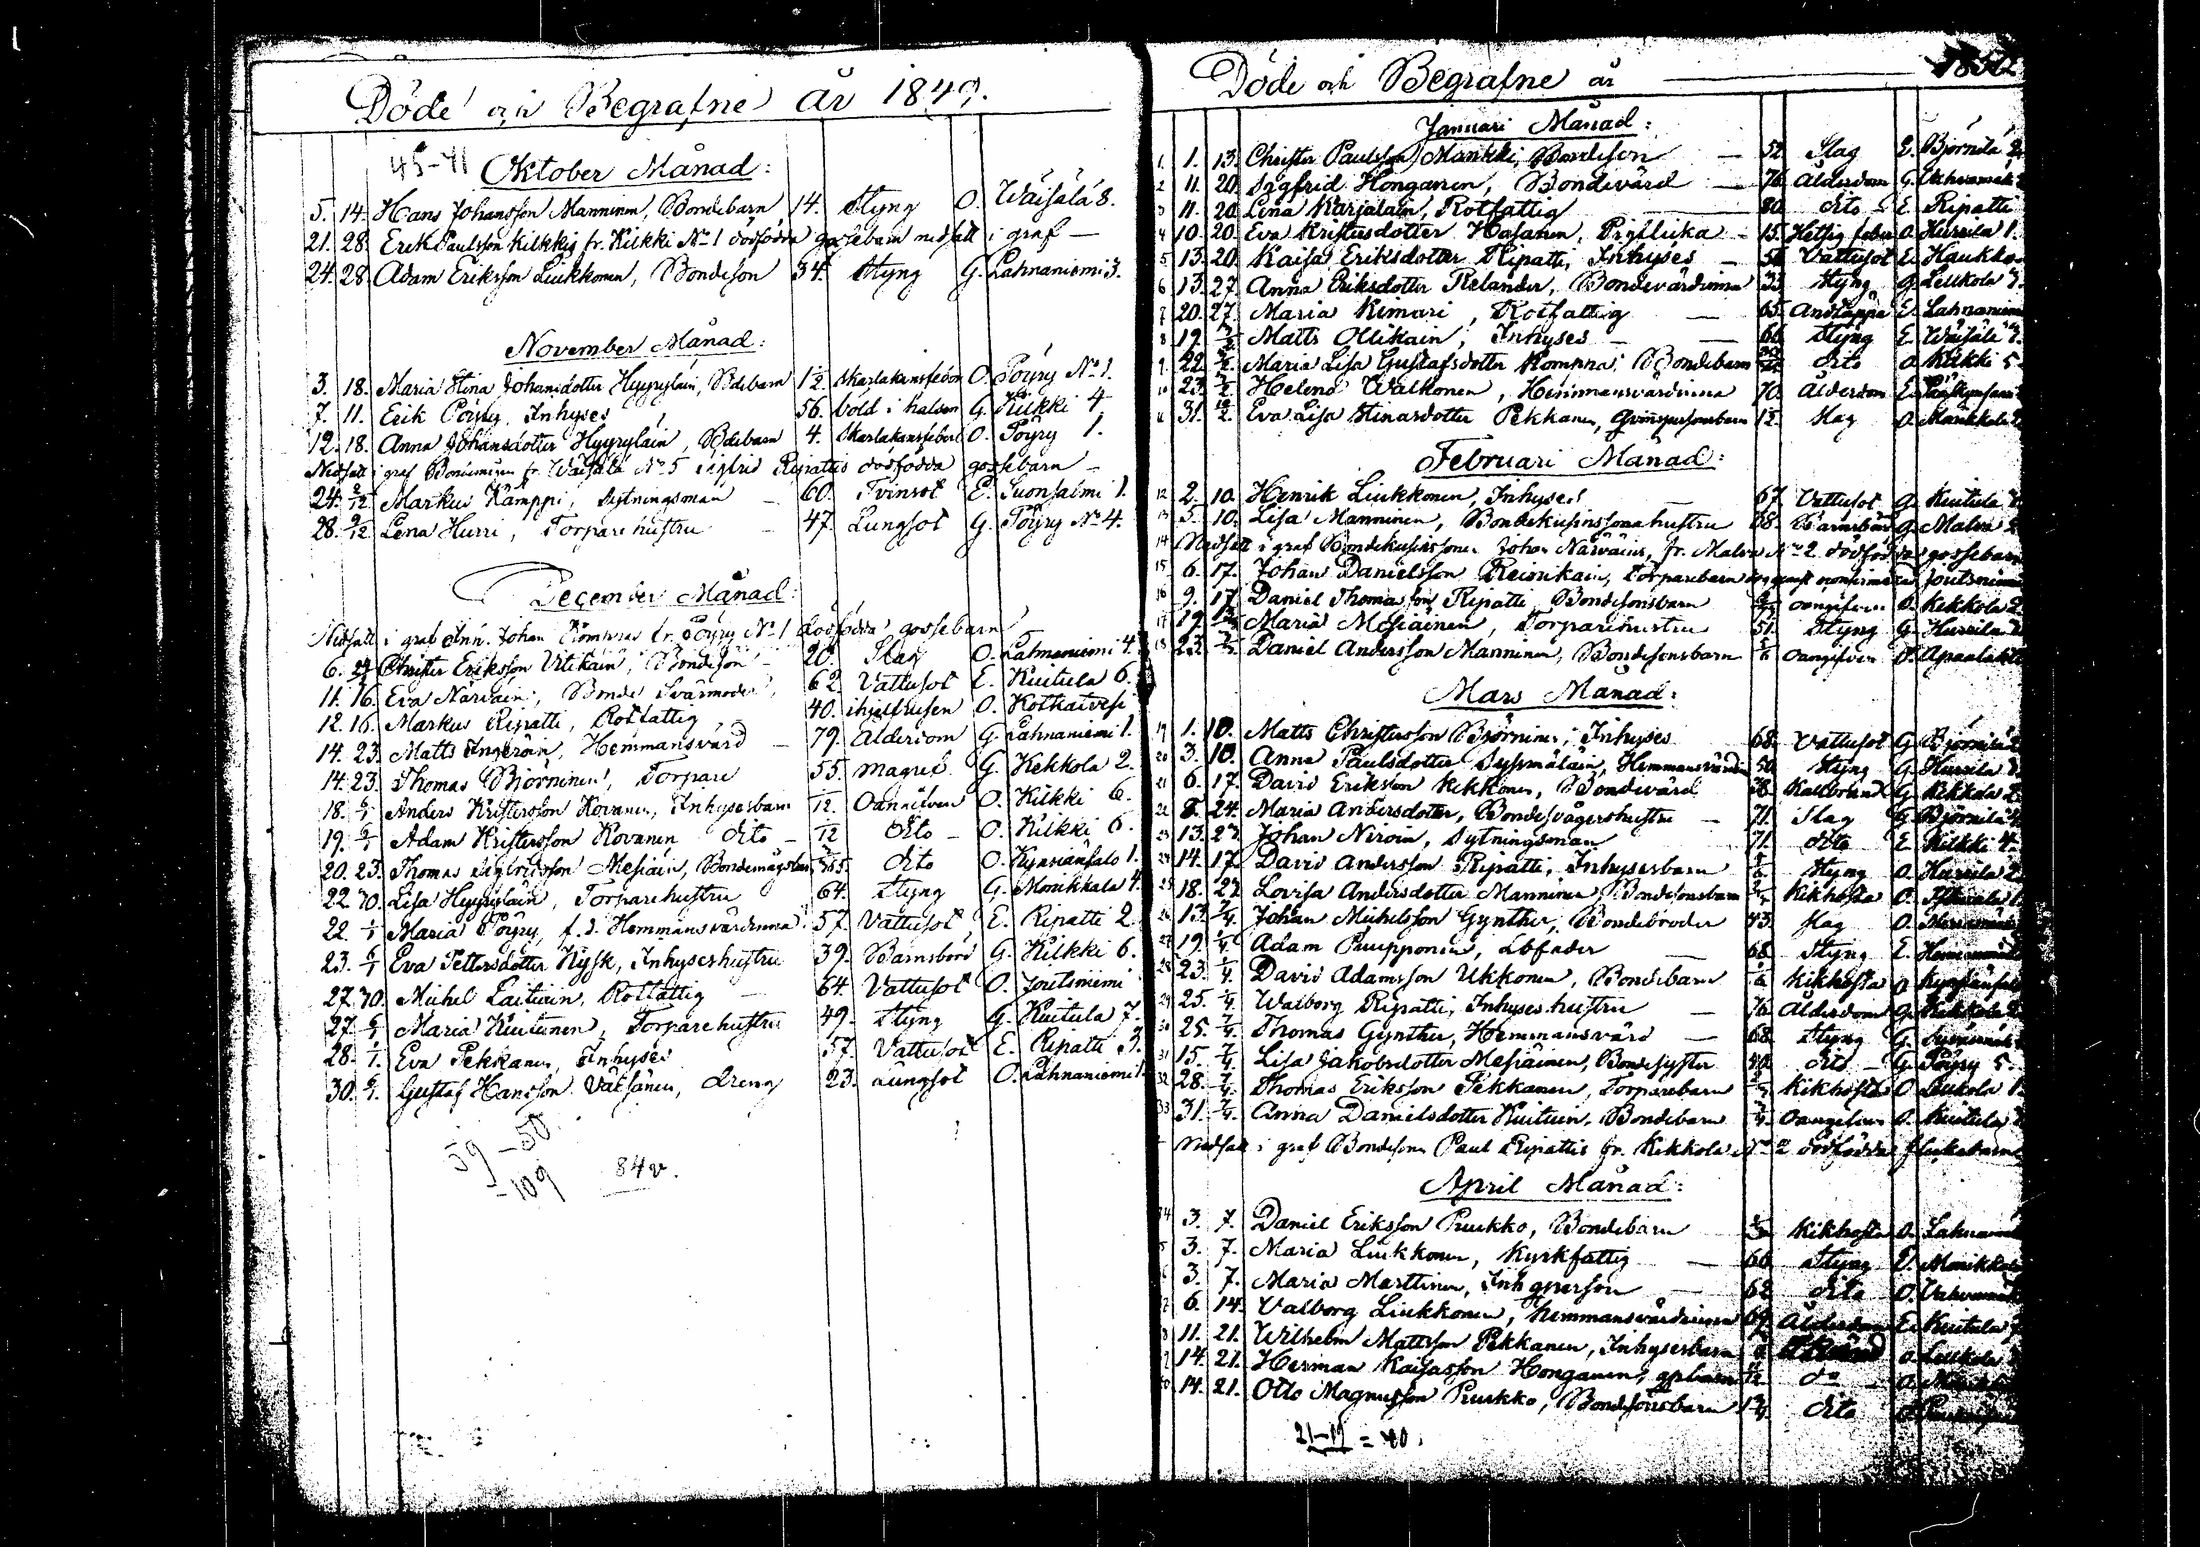 Döde och Begrafne år 1849.
45-41 Oktober Månad:
5. 14. Hans Johansson Manninen, Bondebarn 14. Styng O. Waisälä 8.
21. 28. Erik Paulsson Kilkkis fr. Kilkki No 1 dödfödda gossebarn nedsatt i graf —
24. 28. Adam Eriksson Liukkonen, Bondeson 34. Styng G. Lahnaniemi 3.
November Månad:
3. 18. Maria Stina Johansdotter Hyyryläin, Bdebarn 1/2 Skarlakansfeber O. Pöyry No 1.
7. 11. Erik Pöyry, Inhyses 56. böld i halsen G. Kilkki 4
12. 18. Anna Johansdotter Hyyryläin, Bdebarn 4. Skarlakansfeber O. Pöyry 1.
Nedsatt i graf Bondemågen fr. Waisälä No 5 Sigfrid Ripattis dödfödda gossebarn —
24. 2/12 Markus Kämppi, Sytningsman — 60. Tvinsot E. Suonsalmi 1.
28. 9/12 Lena Hurri, Torparehustru — 47. Lungsot G. Pöyry No 4.
December Månad:
Nedsatt i graf Inh. Johan Kompas fr. Pöyry No 1 dödfödda gossebarn
6. Christer Eriksson Vitikain, Bondeson — 20. Slag O. Lahnaniemi 4.
11. 16. Eva Närväin, Bonde Svärmoder, 62. Vattusot E. Kuitula 6.
12. 16. Markus Ripatti, Rotfattig 40. ihjelfrusen O. Kotkatvesi
14. 23. Matts Ingeröin, Hemmansvärd — 79. Ålderdom G. Lahnaniemi 1.
14. 23. Thomas Björninen, Torpare 55. Magref G. Kekkola 2.
18. 6/1 Anders Kristersson Kovanen, Inhysesbarn 1/12 Oangifven O. Kilkki 6.
19. 6/1 Adam Kristersson Kovanen Dito — 1/12 Dito — O. Kilkki 6.
20. 23. Thomas Sigfridsson Mesiäin, Bondemågsbarn Dito O. Kynsiänsalo 1.
22. 30. Lisa Hyyryläin, Torparehustru 64. Styng G. Monikkala 4.
22. 1/1 Maria Pöyry, f.d. Hemmansvärdinna 57. Vattusot, E. Ripatti 2
23. 6/1 Eva Pettersdotter Kysk, Inhyseshustru 39. Barnsbörd G. Kilkki 6.
27. 30. Michel Laituin, Rotfattig — 64. Vattusot O. Joutsniemi
27. 6/1 Maria Kuitunen, Torparehustru 49. Styng G. Kuitula 7.
28. 1/1 Eva Pekkanen, Inhyses 57. Vattusot E. Ripatti 3.
30. 6/1 Gustaf Hansson Väisänen, Dreng 23. Lungsot O. Lahnaniemi 1.
59-50
-109
84 v.
Döde och Begrafne år — 1850
Januari Månad:
1 1. 13. Christer Paulsson Mankki, Bondeson — 52 Slag E. Björnilä 2.
2 11. 20. Sigfrid Honganen, Bondevärd — 76 Ålderdom G.
3 11. 20. Lena Karjalain, Rotfattig 80. Dito E. Ripatti
4 10. 20. Eva Kristersdotter Hasanen, Pigflicka — 15. Hetsig feber O. Hurula 1.
5 13. 20. Kaisa Eriksdotter Ripatti, Inhyses — Vattusot E. Haukko
6 13. 27. Anna Eriksdotter Relander, Bondevärdinna 33 Styng G. Leukola 3.
7 20. 27. Maria Kimari, Rotfattig — 65. Andtäppa E. Lahnaniemi
8 19. 3/2 Matts Ollikain, Inhyses — 66 Styng E. Waisälä
9 22. 3/2 Maria Lisa Gustafsdotter Komppa, Bondebarn Dito O. Kilkki 5.
10 23. 3/2 Helena Walkonen, Hemmansvärdinna 70. Ålderdom E.
11 31. 10/2 Eva Lisa Stinasdotter Pekkanen, Qvinspersonsbarn 12. Slag O. Monikkala
Februari Månad:
12 2. 10. Henrik Liukkonen, Inhyses — 67 Vattusot G. Kuitula
13 5. 10. Lisa Manninen, Bondekusinssonshustru 38. Barnsbörd G. Malva 2
14 Nedsatt i graf Bondekusinsson Johan Närväins, fr. Malva No 2 dödfödda gossebarn
15 6. 17. Johan Danielsson Reinikain, Torparebarn Joutsniemi
16 9. 17. Daniel Thomasson Ripatti Bondesonsbarn oangifven O. Kekkola 2.
17 19. Maria Mesiäinen, Torparehustru 51. Styng G. Hurula
18 23. Daniel Andersson Manninen, Bondesonsbarn oangifven O.
Mars Månad:
19 1. 10. Matts Christersson Björninen, Inhyses 68. Vattusot G. Björnilä 2
20 3. 10. Anna Paulsdotter Syrmäläin, Hemmansvärdin 50. Styng G. Hurula
21 6. 17. David Eriksson Kekkonen, Bondevärd 38. Kallbrand G. Kekkola 2
22 8. 24. Maria Andersdotter, Bondesvågershustru — 71. Slag G. Björnilä
23 13. 27. Johan Niroin, Sytningsman 71. Dito E. Kilkki 4.
24 14. 17. David Andersson Ripatti, Inhysesbarn Styng O. Hurula 2
25 18. 27. Lovisa Andersdotter Manninen, Bondesonsbarn Kikhosta O.
26 13. 7/4 Johan Michelsson Gynther, Bondebroder 43. Slag O.
27 19. 1/4 Adam Puupponen, Lösfader 68. Styng E.
28 23. 1/4 David Adamsson Ukkonen, Bondebarn Kikhosta O. Kynsiänsalo
29 25. 1/4 Walborg Ripatti, Inhyseshustru — 76 Ålderdom G. Kekkola 2.
30 25. 7/4 Thomas Gynther, Hemmansvärd — 68. Styng G.
31 15. 7/4 Lisa Jakobsdotter Mesiäinen, Bondesyster 40. Dito — G. Pöyry 5.
32 28. 7/4 Thomas Eriksson Pekkanen, Torparebarn Kikhosta O. Leukola 1.
33 31. 7/4 Anna Danielsdotter Kuituin, Bondebarn oangifven O. Kuitula
Nedsatt i graf Bondeson Paul Ripattis fr. Kekkola No 2 dödfödda flickebarn
April Månad:
34 3. 7. Daniel Eriksson Puukko, Bondebarn Kikhosta O. Lahnaniemi
3. 7. Maria Liukkonen, Kyrkfattig — 66 Styng E. Monikkala
3. 7. Maria Marttinen, Inh qperson 62 Dito O.
6. 14. Valborg Liukkonen, Hemmansvärdinna 69. Ålderdom E. Kuitula 7
11. 21. Wilhelm Mattsson Pekkanen, Inhysesbarn O. Leukola
14. 21. Herman Kaisasson Honganen, qpbarn do — O.
14. 21. Otto Magnusson Puukko, Bondesonsbarn Dito
21-19 = 40.